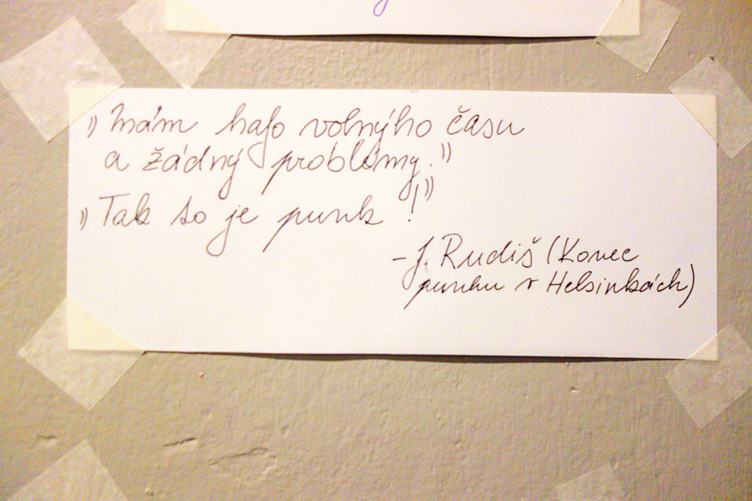 „Mám hafo volnýho času
a žádný problémy.“
„Tak to je punk!“
– J. Rudiš (Konec
punku v Helsinkách)